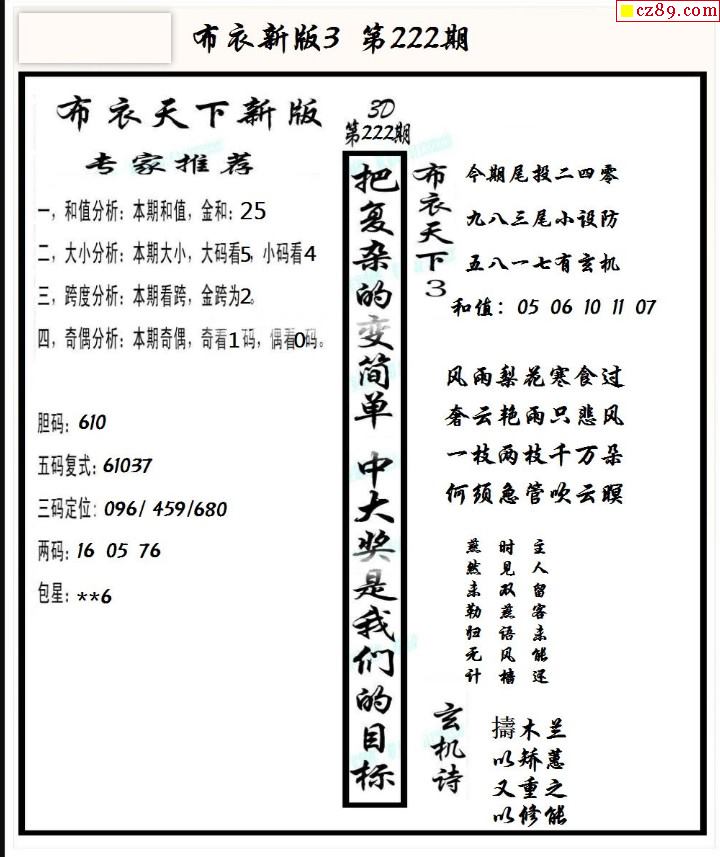 cz89.com
布衣新版3 第222期
布衣天下新版
专家推荐
一，和值分析：本期和值，金和：25
二，大小分析：本期大小，大码看5，小码看4
三，跨度分析：本期看跨，金跨为2。
四，奇偶分析：本期奇偶，奇看1码，偶看0码。
胆码：610
五码复式：61037
三码定位：096/ 459/680
两码：16 05 76
包星：**6
3D
第222期
把复杂的变简单 中大奖是我们的目标
布衣天下3
今期尾投二四零
九八三尾小设防
五八一七有玄机
和值：05 06 10 11 07
风雨梨花寒食过
奢云艳雨只悲风
一枝两枝千万朵
何须急管吹云暝
主人留客未能还
时见双燕语风樯
燕然未勒归无计
玄机诗
擣木兰
以矫蕙
又重之
以修能